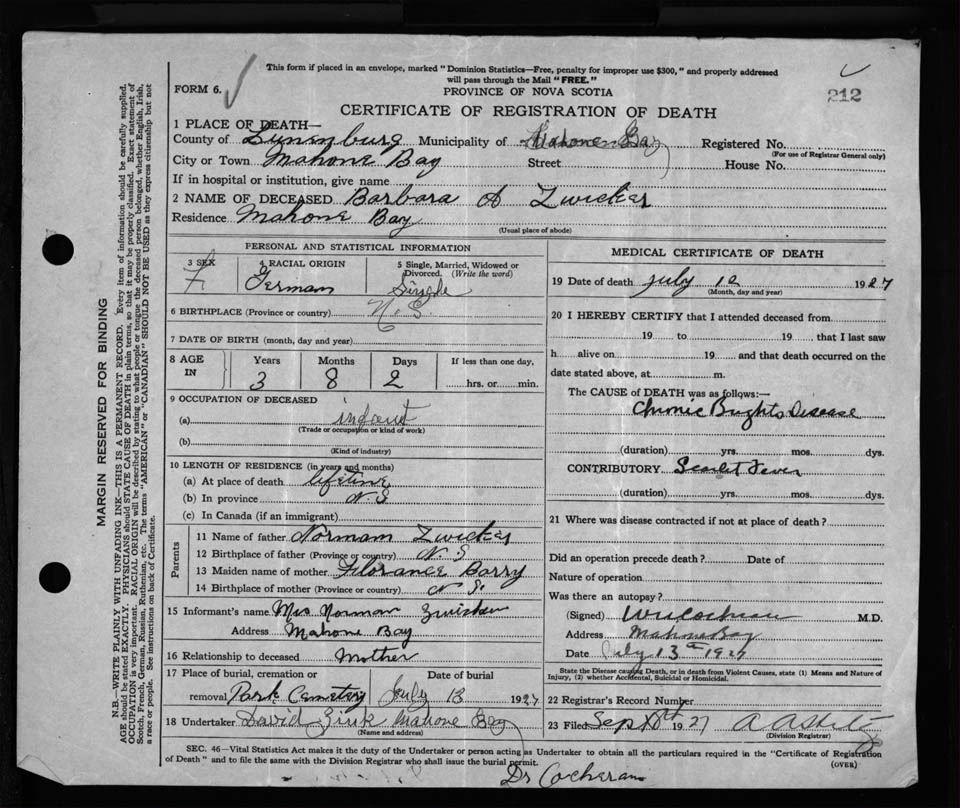 This form if placed in an envelope, marked "Dominion Statistics—Free, penalty for improper use $300," and properly addressed
will pass through the Mail "FREE."
FORM 6.
PROVINCE OF NOVA SCOTIA
212
CERTIFICATE OF REGISTRATION OF DEATH
1 PLACE OF DEATH—
County of Lunenburg Municipality of Mahone Bay Registered No.
(For use of Registrar General only)
City or Town Mahone Bay Street House No.
If in hospital or institution, give name
2 NAME OF DECEASED Barbara A Zwicker
Residence Mahone Bay
(Usual place of abode)
PERSONAL AND STATISTICAL INFORMATION
3 SEX 4 RACIAL ORIGIN 5 Single, Married, Widowed or
Divorced. (Write the word)
F. German Single
6 BIRTHPLACE (Province or country) N.S.
7 DATE OF BIRTH (month, day and year)
8 AGE IN Years Months Days If less than one day,
3 8 2 hrs. or min.
9 OCCUPATION OF DECEASED
(a) infant
(Trade or occupation or kind of work)
(b)
(Kind of industry)
10 LENGTH OF RESIDENCE (in years and months)
(a) At place of death lifetime
(b) In province N.S
(c) In Canada (if an immigrant)
Parents
11 Name of father Norman Zwicker
12 Birthplace of father (Province or country) N.S
13 Maiden name of mother Florance Barry
14 Birthplace of mother (Province or country) N.S.
15 Informant's name Mrs Norman Zwicker
Address Mahone Bay
16 Relationship to deceased Mother
17 Place of burial, cremation or Date of burial
removal Park Cemetery July 13 1927
18 Undertaker David Zink Mahone Bay
(Name and address)
MEDICAL CERTIFICATE OF DEATH
19 Date of death July 12 1927
(Month, day and year)
20 I HEREBY CERTIFY that I attended deceased from
19 to 19 that I last saw
h alive on 19 and that death occurred on the
date stated above, at m.
The CAUSE of DEATH was as follows:—
Chronic Brights Disease
(duration) yrs. mos. dys.
CONTRIBUTORY Scarlet Fever
(duration) yrs. mos. dys.
21 Where was disease contracted if not at place of death?
Did an operation precede death? Date of
Nature of operation
Was there an autopsy?
(Signed) M.D.
Address Mahone Bay
Date July 13th 1927
State the Disease causing Death, or in death from Violent Causes, state (1) Means and Nature of
Injury, (2) whether Accidental, Suicidal or Homicidal.
22 Registrar's Record Number
23 Filed Sept 1927
(Division Registrar)
SEC. 46—Vital Statistics Act makes it the duty of the Undertaker or person acting as Undertaker to obtain all the particulars required in the "Certificate of Registration
of Death" and to file the same with the Division Registrar who shall issue the burial permit.
(OVER)
Dr Cocheran
MARGIN RESERVED FOR BINDING
N.B.—WRITE PLAINLY WITH UNFADING INK—THIS IS A PERMANENT RECORD. Every item of information should be carefully supplied.
AGE should be stated EXACTLY. PHYSICIANS should STATE CAUSE OF DEATH in plain terms, so that it may be properly classified. Exact statement of
OCCUPATION is very important. RACIAL ORIGIN will be described by stating to what people or tongue the deceased person belonged, whether English, Irish,
Scotch, French, German, Russian, Ruthenian, etc. The terms "AMERICAN" or "CANADIAN" SHOULD NOT BE USED as they express citizenship but not
a race or people. See instructions on back of Certificate.